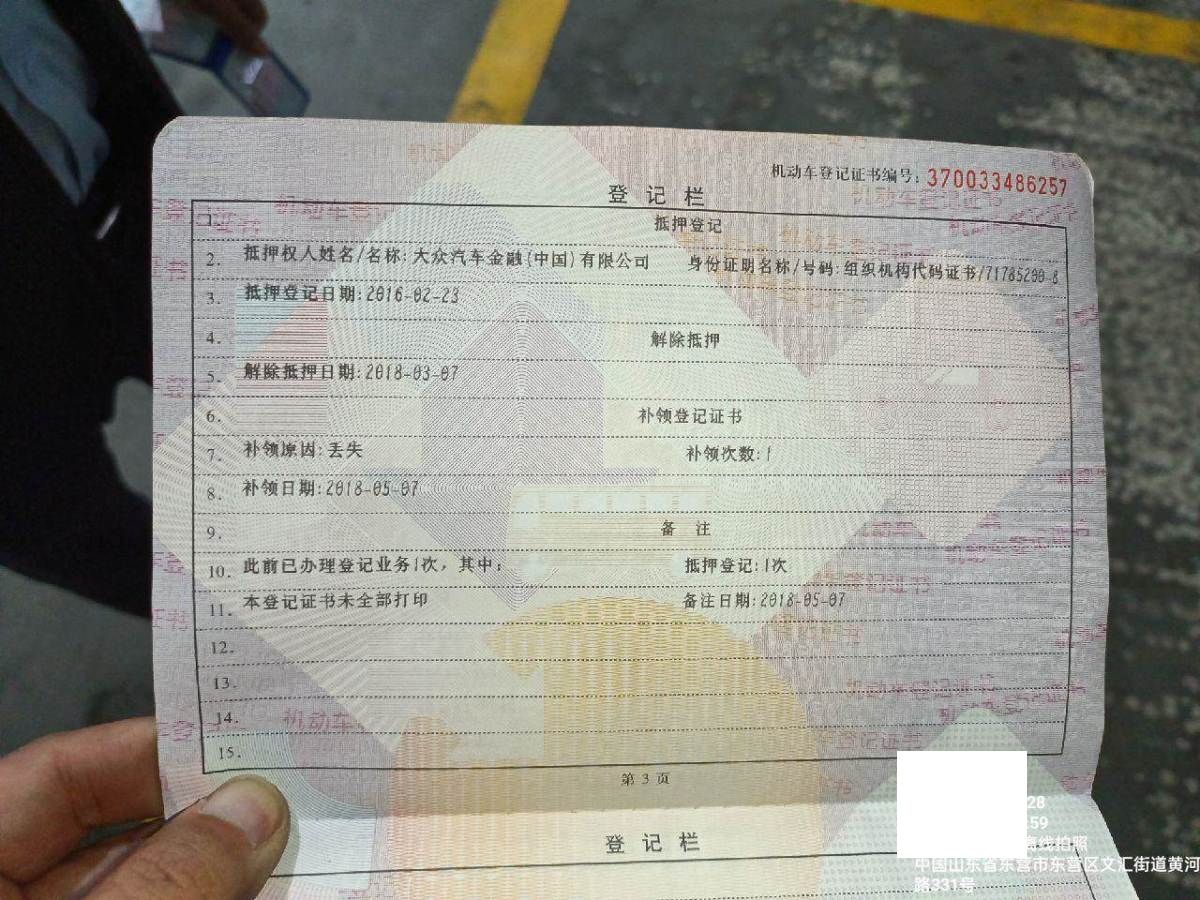 机动车登记证书编号:370033486257
登记栏
1. 抵押登记
2. 抵押权人姓名/名称:大众汽车金融(中国)有限公司 身份证明名称/号码:组织机构代码证书/71785200-8
3. 抵押登记日期:2016-02-23
4. 解除抵押
5. 解除抵押日期:2018-03-07
6. 补领登记证书
7. 补领原因:丢失 补领次数:1
8. 补领日期:2018-05-07
9. 备 注
10. 此前已办理登记业务1次，其中: 抵押登记:1次
11. 本登记证书未全部打印 备注日期:2018-05-07
12.
13.
14.
15.
第 3 页
登记栏
28
59
离线拍照
中国山东省东营市东营区文汇街道黄河
路331号